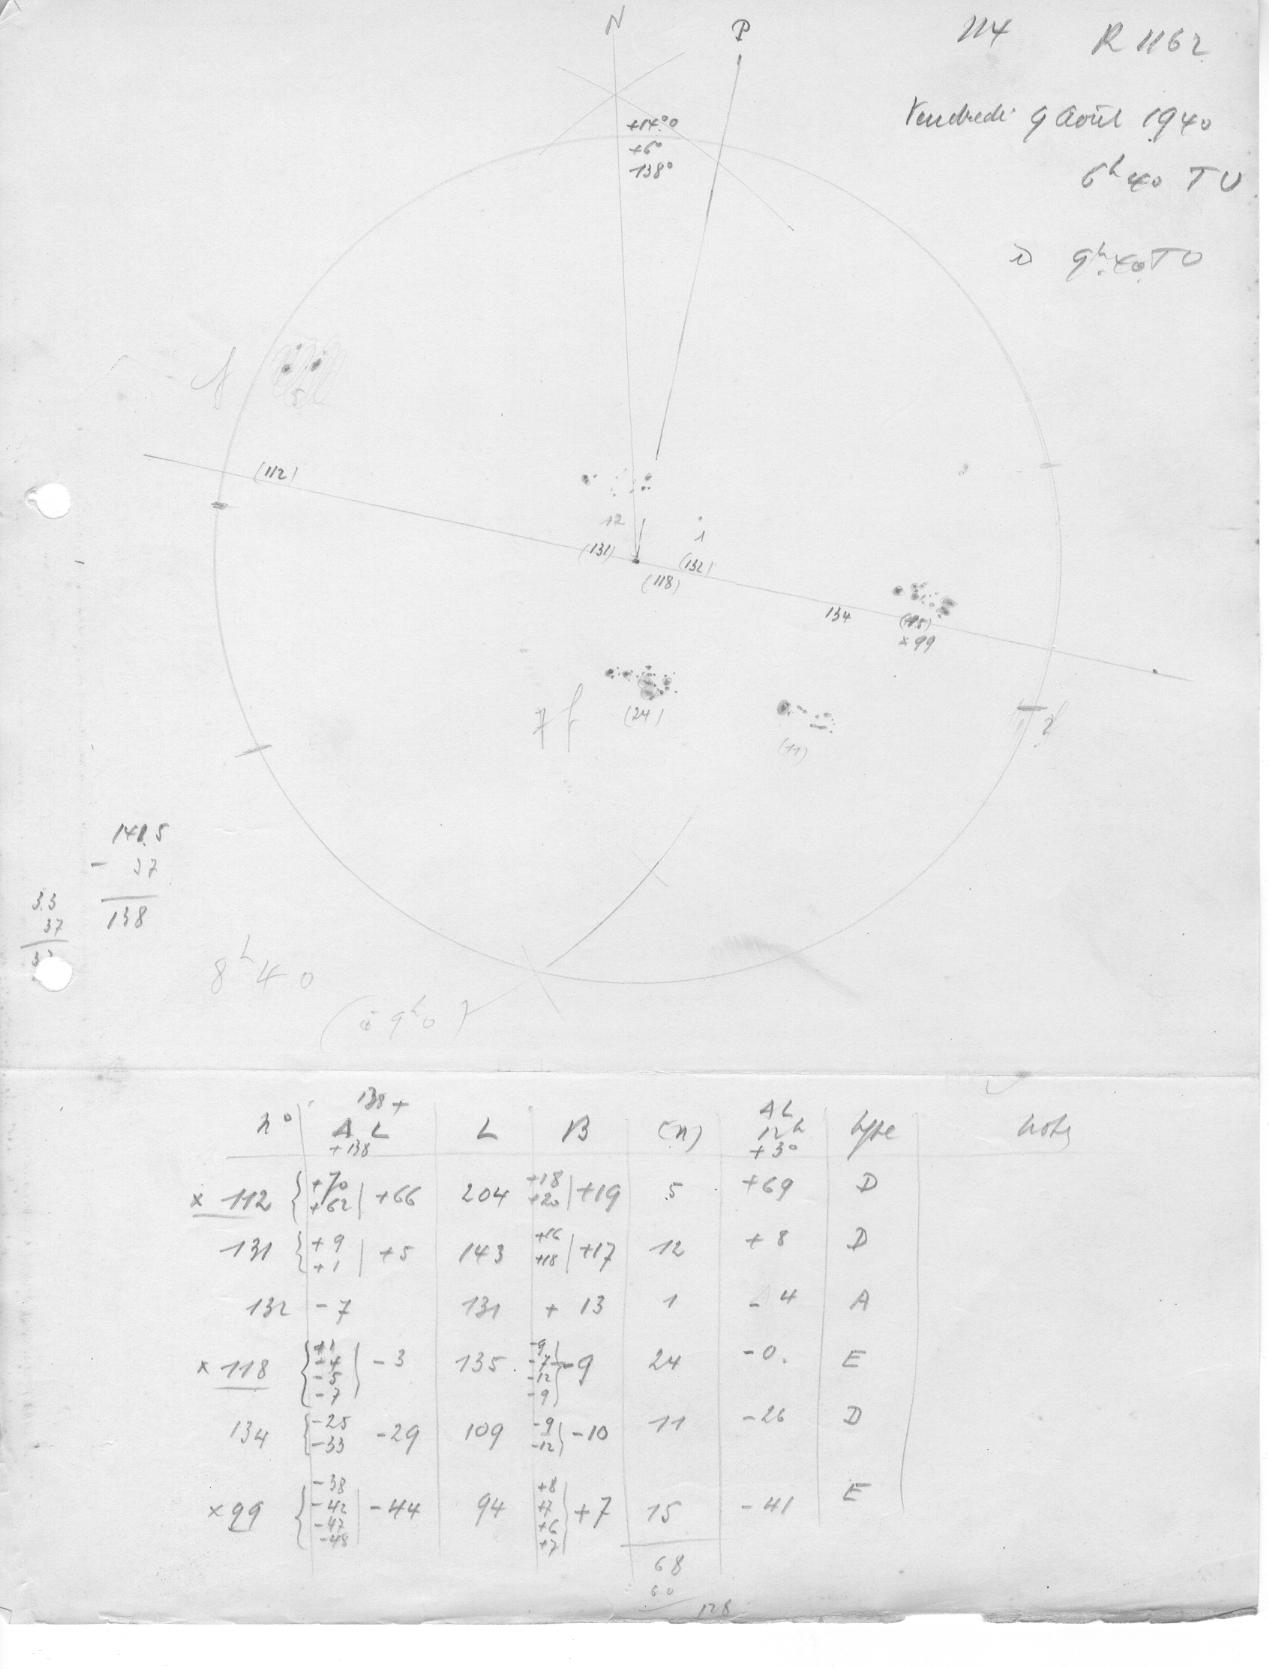 N P 114 R 1162
Vendredi 9 Août 1940
6h40 TU
9h40 TU
+14°0
+6°
138°
5
(112)
12
1
(131) (132)
(118)
134 (15)
x 99
7 f (24)
(11)
141.5
- 37
138
33
37
37
8h40
(à 9h0)
138+
n° AL L B (n) AL 12h +3° type notes
+138
x 112 +70 +62 +66 204 +18 +20 +19 5 +69 D
131 +9 +1 +5 143 +16 +18 +17 12 +8 D
132 -7 131 +13 1 -4 A
x 118 +1 -4 -5 -7 -3 135 -9 -7 -12 -9 -9 24 -0. E
134 -25 -33 -29 109 -9 -12 -10 11 -26 D
x 99 -38 -42 -47 -48 -44 94 +8 +7 +6 +7 +7 15 -41 E
68
60
128